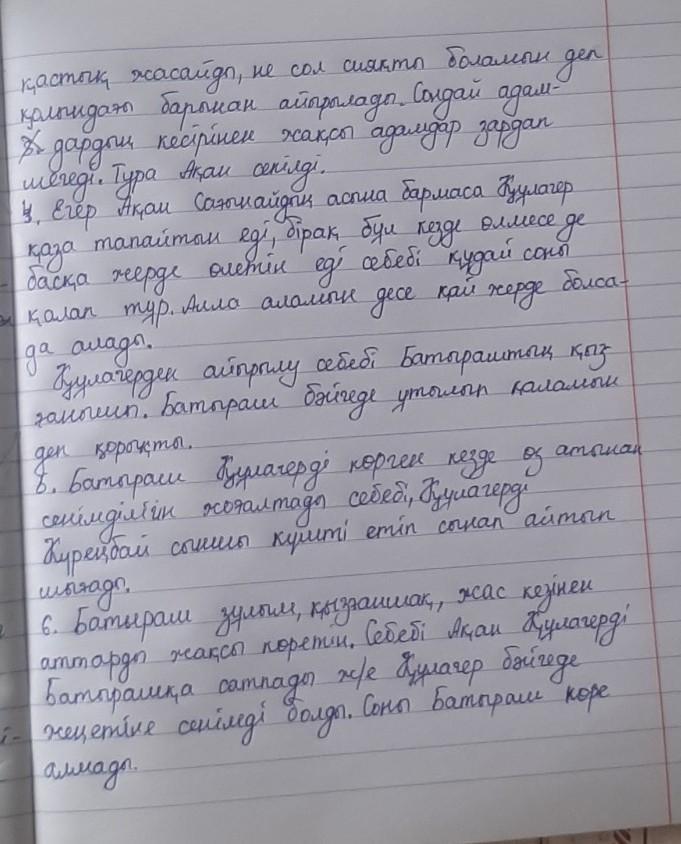 қастық жасайды, не сол сияқты боламын деп
қолындағы барынан айырылады. Сондай адам-
дардың кесірінен жақсы адамдар зардап
шегеді. Тура Ақан секілді.
4. Егер Ақан Сағынайдың асына бармаса Құлагер
қаза таппайтын еді, бірақ бұл кезде өлмесе де
басқа жерде өлетін еді себебі құдай соны
қалап тұр. Алла аламын десе қай жерде болса-
да алады.
Құлагерден айырылу себебі Батыраштың қыз
ғанышы. Батыраш бәйгеде ұтылып қаламын
деп қорықты.
5. Батыраш Құлагерді көрген кезде өз атынан
сенімділігін жоғалтады себебі, Құлагерді
Күреңбай сыншы күшті етіп сынап айтып
шығады.
6. Батыраш зұлым, қызғаншақ, жас кезінен
аттарды жақсы көретін. Себебі Ақан Құлагерді
Батырашқа сатпады ж/е Құлагер бәйгеде
жеңетіне сенімді болды. Соны Батыраш көре
алмады.